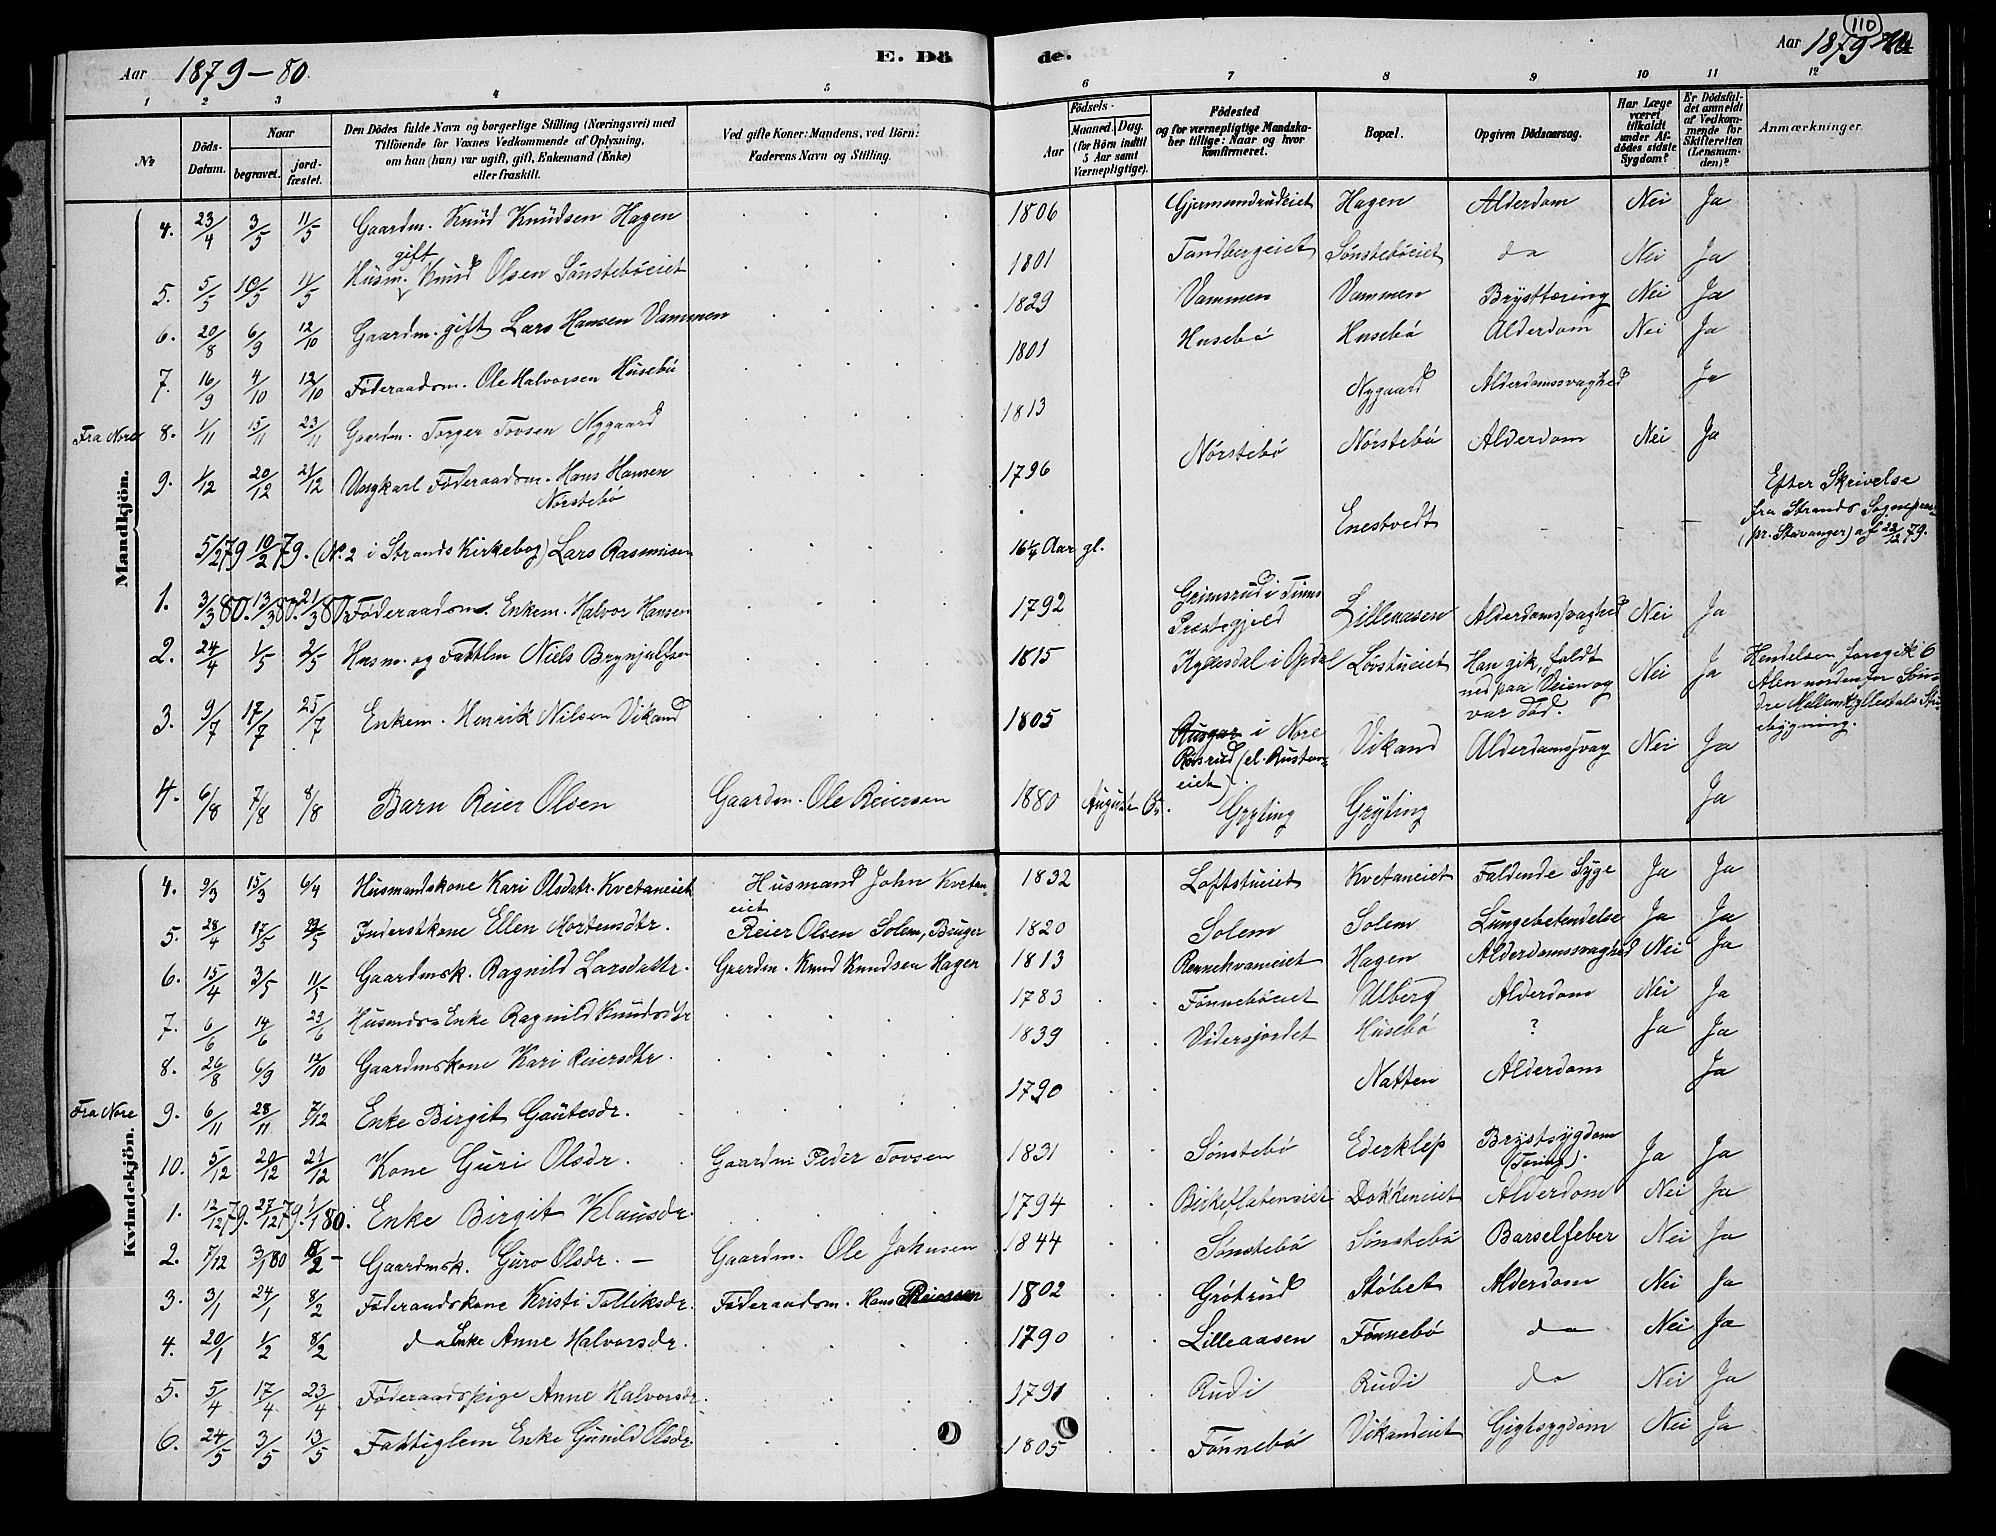 110
Aar 1879-80. E. Dö de. Aar 1879
1 2 3 4 5 6 7 8 9 10 11 12
№ Döds-Datum. Naar begravet. jordfæstet. Den Dödes fulde Navn og borgerlige Stilling (Næringsvei) med Tilföiende for Voxnes Vedkommende af Oplysning, om han (hun) var ugift, gift, Enkemand (Enke) eller fraskilt. Ved gifte Koner: Mandens, ved Börn: Faderens Navn og Stilling. Födsels- Aar Maaned. Dag. (for Börn indtil 5 Aar samt Værnepligtige). Födested og for værnepligtige Mandskaber tillige: Naar og hvor konfirmeret. Bopæl. Opgiven Dödsaarsag. Har Læge været tilkaldt under Afdödes sidste Sygdom? Er Dödsfaldet anmeldt af Vedkommende for Skifteretten (Lensmanden)? Anmærkninger.
Mandkjön.
4. 23/4 3/5 11/5 Gaardm. Knud Knudsen Hagen 1806 Gjermundrudeiet Hagen Alderdom Nei Ja
5. 5/5 10/5 11/5 Husm. gift Knud Olsen Sønstebøeiet 1801 Tandbergeiet Sønstebøeiet do Nei Ja
6. 20/8 6/9 12/10 Gaardm. gift Lars Hansen Vammen 1829 Vammen Vammen Brysttæring Nei Ja
7. 16/9 4/10 12/10 Føderaadsm. Ole Halvorsen Husebø 1801 Husebø Husebø Alderdom Nei Ja
Fra Nore 8. 1/11 15/11 23/11 Gaardm. Torger Tovsen Nygaard 1813 Nygaard Alderdomssvaghed Ja
9. 1/12 20/12 21/12 Ungkarl Føderaadsm. Hans Hansen Nørstebø 1796 Nørstebø Nørstebø Alderdom Nei Ja
5/2 79 10/2 79. (N. 2 i Strands Kirkebog) Lars Rasmusen 16 1/4 Aar gl. Enestvedt - - - Efter Skrivelse fra Strands Sognepræst (pr. Stavanger) af 22/12 79.
1. 3/3 80. 13/3 80. 21/3 80 Føderaadsm. Enkem. Halvor Hansen 1792 Grimsrud i Tinns Præstegjeld Lilleaasen Alderdomssvaghed Nei Ja
2. 24/4 1/5 2/5 Husm. og Fattlm Niels Brynjulfsen 1815 Kyllesdal i Opdal Løvstueiet Han gik, faldt ned paa Veien og var død. Nei Ja Hendelsen foregik 6 Alen nordenfor Søndre Mellem Kyllesdals Stuebygning.
3. 9/7 17/7 25/7 Enkem. Henrik Nilsen Vikand 1805 i Nore Rusrud (el. Rusteneiet). Vikand Alderdomssvag Nei Ja
4. 6/8 7/8 8/8 Barn Reier Olsen Gaardm. Ole Reiersen 1880 August 6. Gryting Gryting Ja
Kvindekjön.
4. 9/3 15/3 6/4 Husmandskone Kari Olsdatr. Kvetaneiet Husmand John Kvetaneiet 1832 Loftstueiet Kvetaneiet Faldende Syge Ja Ja
5. 28/4 17/5 Inderstkone Ellen Mortensdtr. Reier Olsen Solem, Bruger 1820 Solem Solem Lungebetendelse Ja Ja
6. 15/4 3/5 11/5 Gaardmsk. Ragnild Larsdattr. Gaardm. Knud Knudsen Hagen 1813 Hagen Alderdomssvaghed Nei Ja
7. 6/6 14/6 23/6 Husmds Enke Ragnild Knudsdtr 1783 Fønnebøeiet Ulberg Alderdom Nei Ja
8. 26/8 6/9 12/10 Gaardmskone Kari Reiersdtr. 1839 Vidersjordet Husebø ? Ja Ja
Fra Nore 9. 6/11 28/11 7/12 Enke Birgit Gautesdr. 1790 Natten Alderdom Ja
10. 5/12 20/12 21/12 Kone Guri Olsdr. Gaardm Peder Tovsen 1831 Sønstebø Ederklep Brystsygdom (Tæring). Ja Ja
1. 12/12 79. 27/12 79. 1/1 80. Enke Birgit Klausdr. 1794 Birkeflateneiet Dokkeneiet Alderdom Nei Ja
2. 7/12 3/1 80 8/2 - Gaardmsk. Guro Olsdr. - Gaardm. Ole Johnsen 1844 Sønstebø Sønstebø Barselfeber Nei Ja
3. 3/1 24/1 8/2 Føderaadskone Kristi Tolliksdr. Føderaadsm. Hans Reiersen 1802 Grøtrud Støbet Alderdom Nei Ja
4. 20/1 1/2 8/2 do Enke Anne Halvorsdr. 1790 Lilleaasen Fønnebø do Nei Ja
5. 5/4 17/4 23/4 Føderaadspige Anne Halvorsdr. 1791 Rudi Rudi do Nei Ja
6. 24/5 3/5 13/5 Fattiglem Enke Gunild Olsdr. 1805 Fønnebø Vikandeiet Gigtsygdom Nei Ja